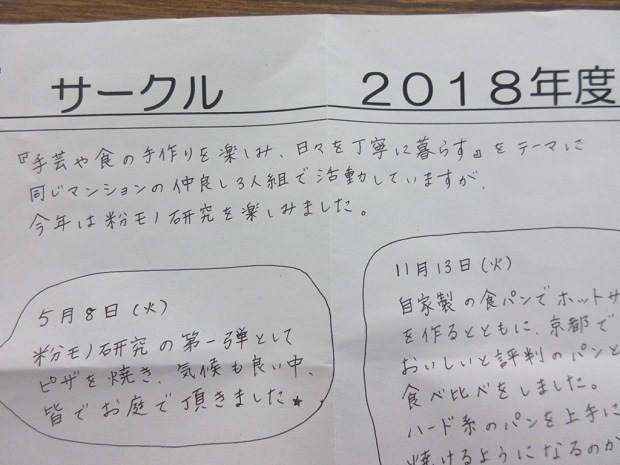 サークル 2018年度
『手芸や食の手作りを楽しみ、日々を丁寧に暮らす』をテーマに
同じマンションの仲良し3人組で活動していますが、
今年は粉モノ研究を楽しみました。
5月8日(火)
粉モノ研究の第一弾として
ピザを焼き、気候も良い中、
皆でお庭で頂きました★
11月13日(火)
自家製の食パンでホットサ
を作るとともに、京都で
おいしいと評判のパンと
食べ比べをしました。
ハード系のパンを上手に
焼けるようになるのか